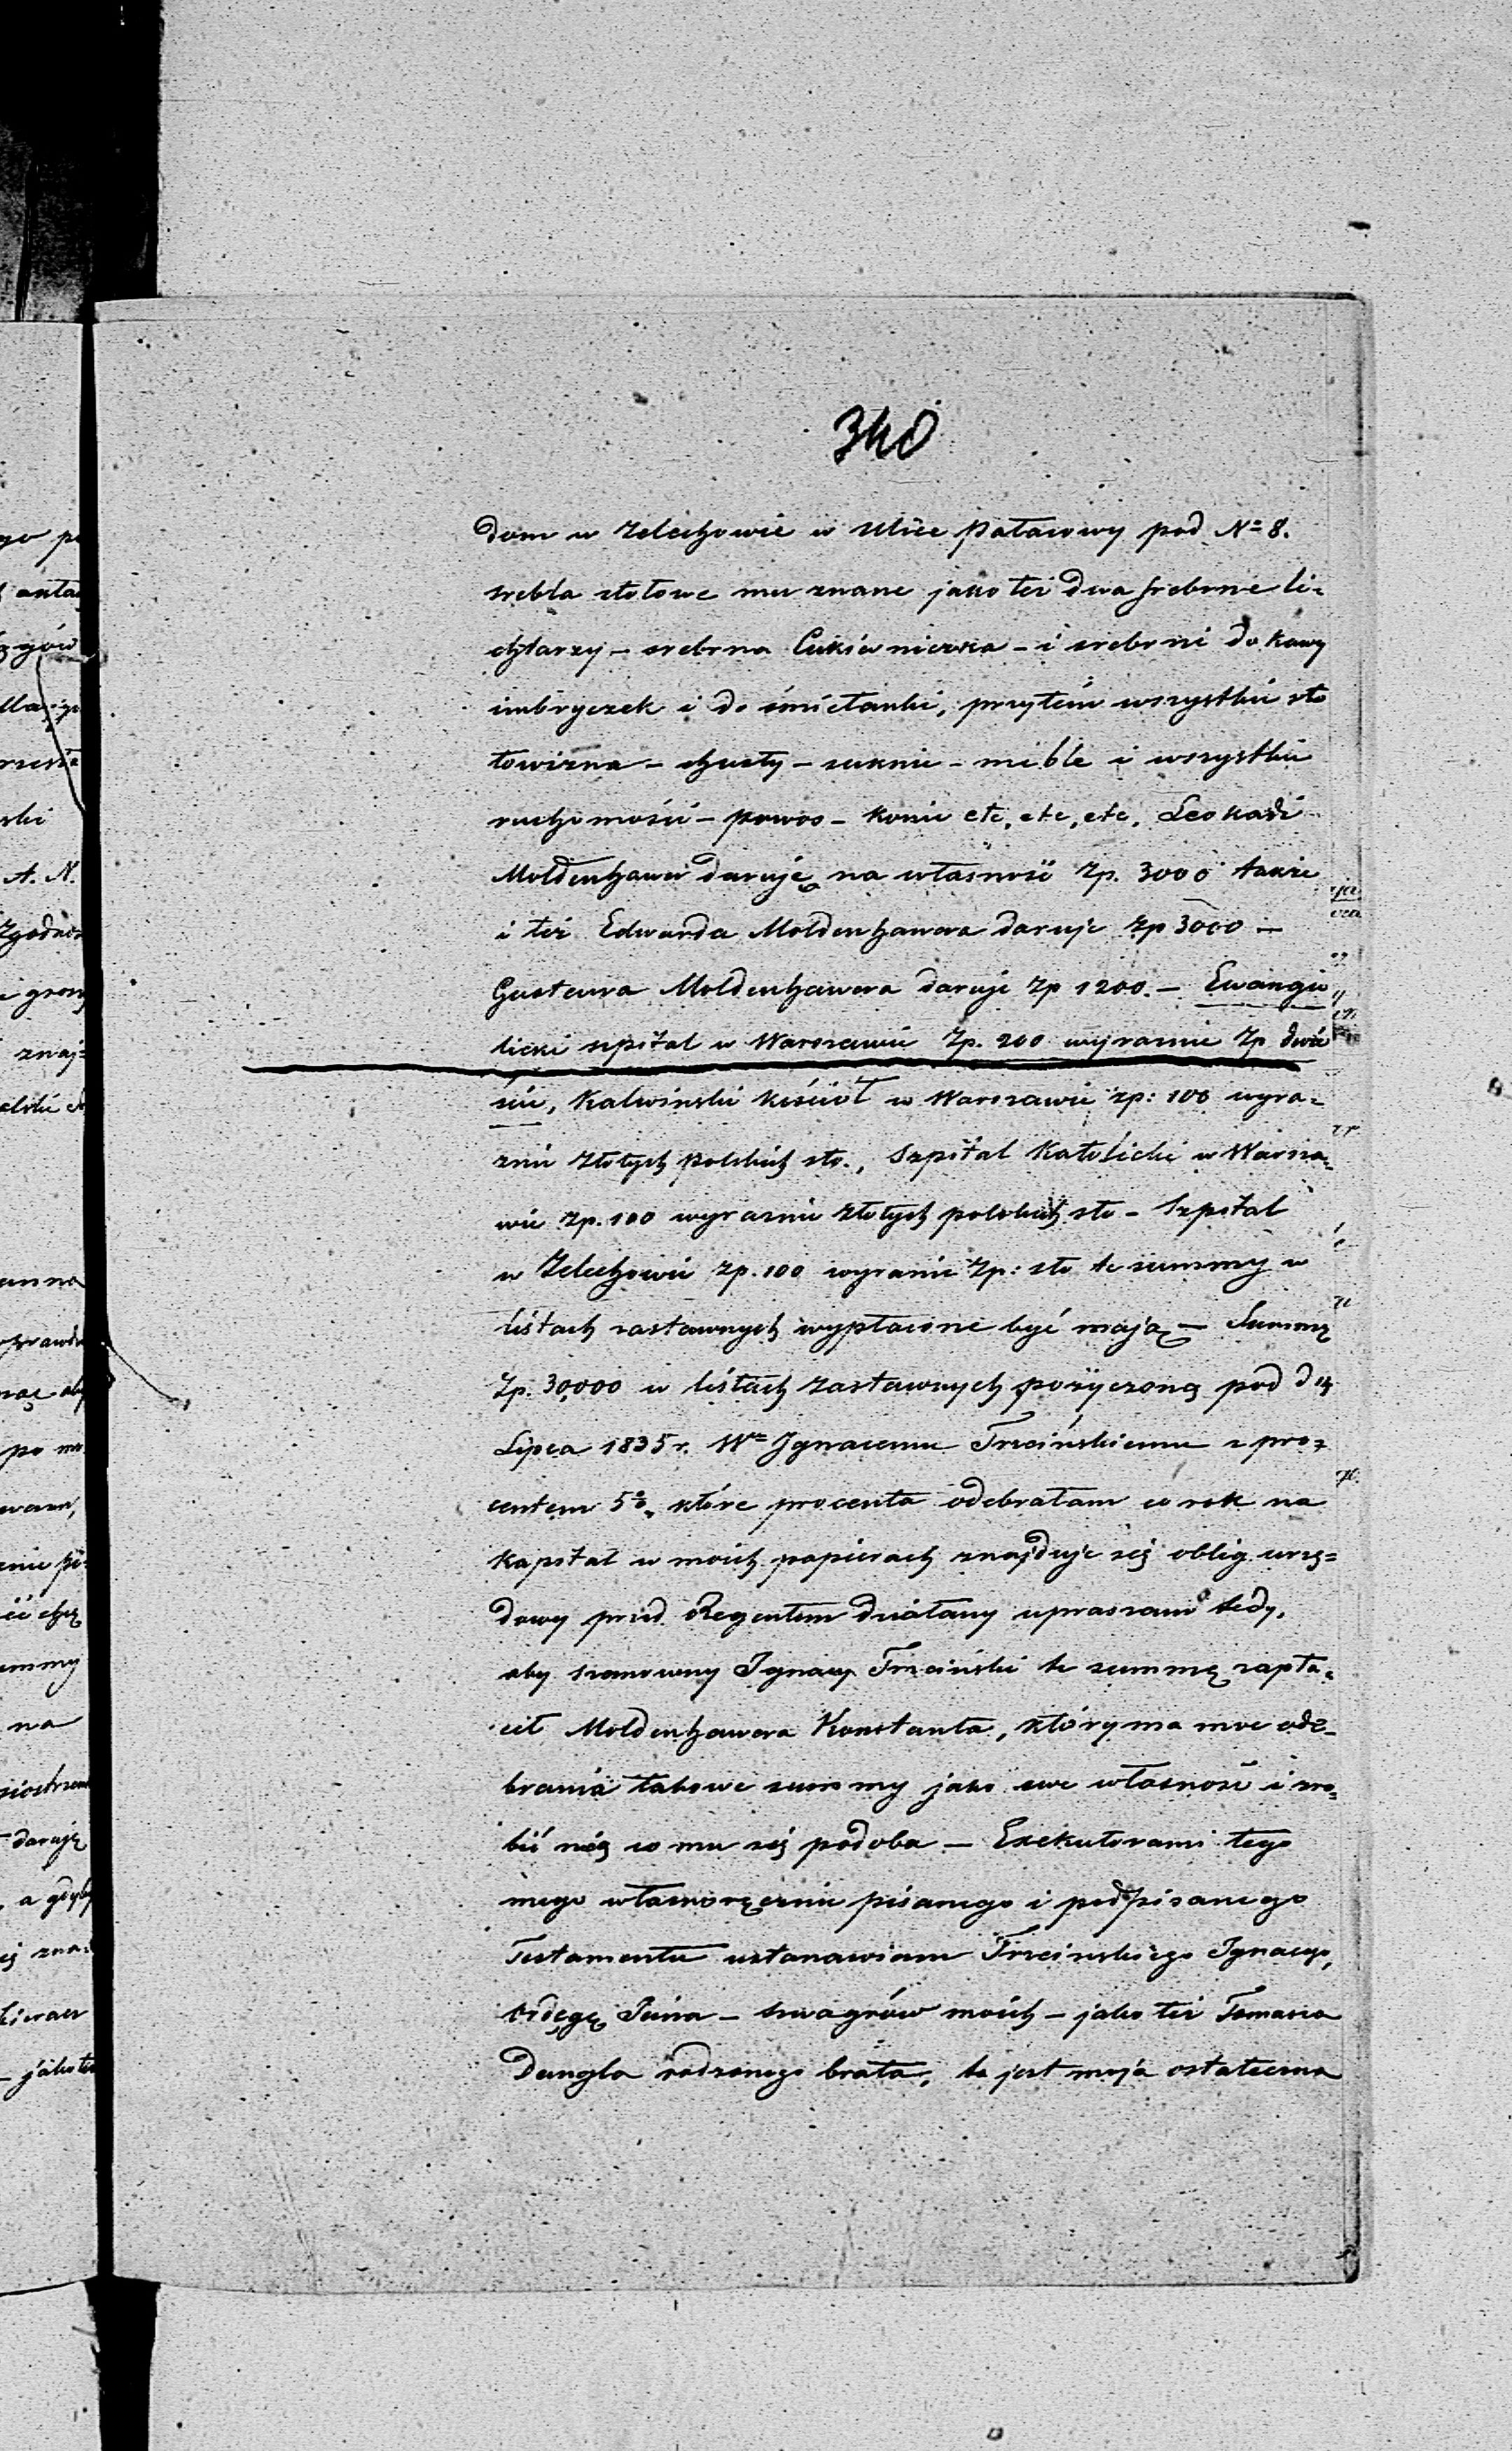 340
dom w Zelechowie w Ulice Pałacowy pod No 8.
srebła stołowe mu znane jako też dwa srebrne li-
chtarzy – srebrna Cukierniczka – i srebrni do kawy
imbryczek i do śmietanki, przytém wszystkie sto
łowizna – chusty – suknie – meble i wszystkie
ruchomości – powos – konie etc, etc, etc, Leokadi
Moldenhawer daruję na własność Zp. 3000 także
i też Edwarda Moldenhawera daruje Zp 3000 –
Gustawa Moldenhawera daruje Zp 1200. – Ewangie
licki szpital w Warszawie Zp. 200 wyraznie Zp dwie
scie, Kalwinski kościół w Warszawie zp: 100 wyra-
znie Złotych Polskich sto., Szpital Katolicki w Warsza-
wie zp. 100 wyraznie złotych polskich sto – Szpital
w Zelechowie zp. 100 wyranie Zp: sto te summy w
listach zastawnych wypłacone być mają – Summę
Zp. 30,000 w listach zastawnych pożyczoną pod d 14
Lipca 1835 r. Wu Ignacemu Trzcińskiemu z pro-
centem 5%, które procenta odebrałam co rok na
kapitał w moich papierach znajduje się oblig urzę-
dowy przed Regentem działany upraszam tedy,
aby szanowny Ignacy Trzciński te summę zapła-
cił Moldenhawera Konstanta, który ma moc ode-
brania takowe summy jako swe własność i zro-
bić z nią co mu się podoba – Exekutorami tego
mego własnoręcznie pisanego i podpisanego
Testamentu ustanawiam Trzcinskiego Ignacego,
Jana – szwagrów moich – jako też Tomasza
Dangla rodzonego brata, to jest moja ostateczna